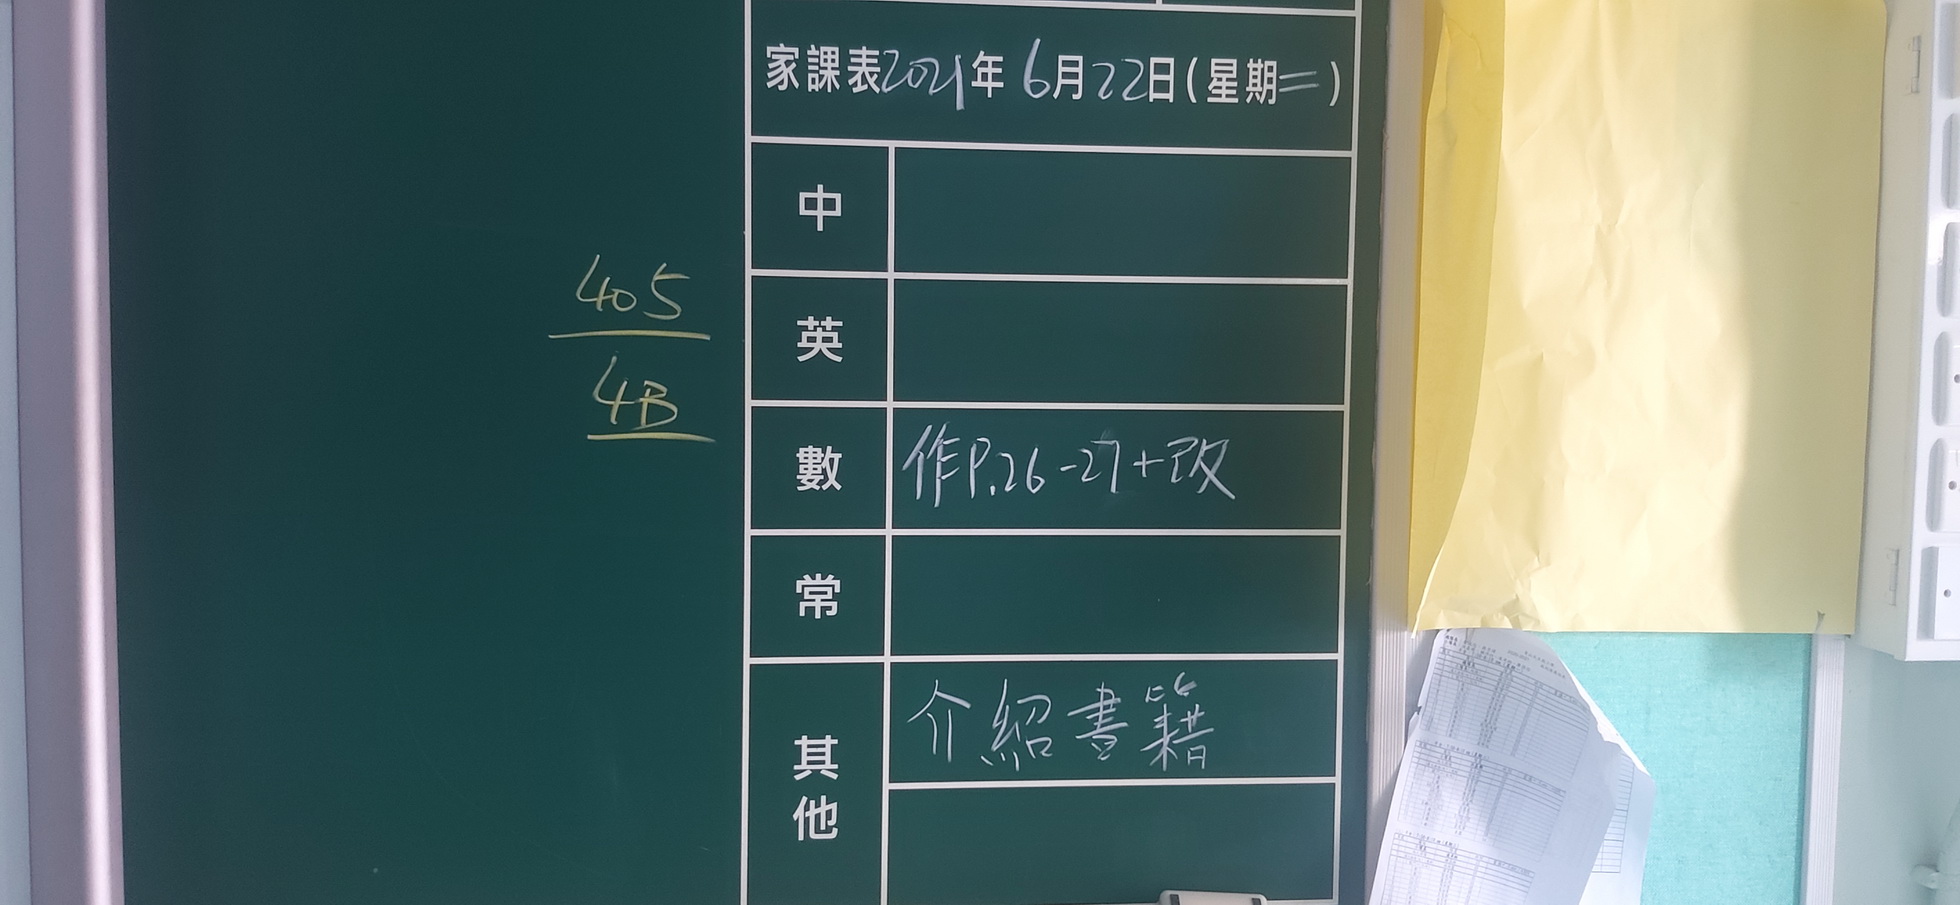 家課表2021年6月22日(星期二)
中
英
405
4B
數 作P.26-27+改
常
其他 介紹書籍